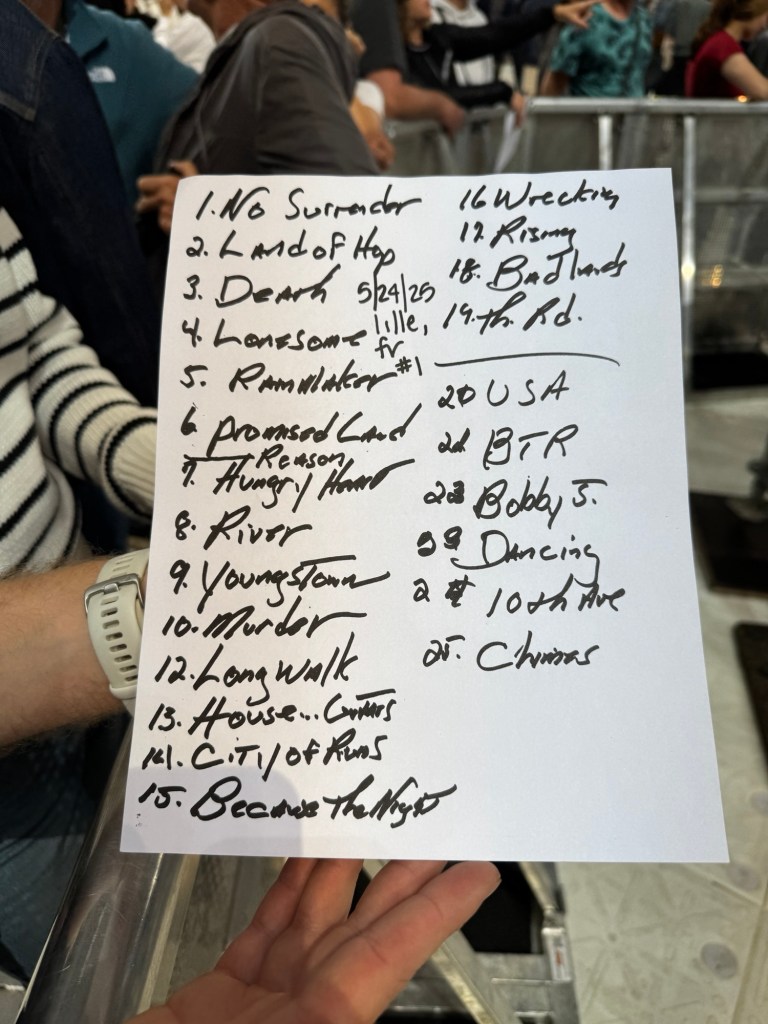 1. No Surrender
2. Land of Hop
3. Death
5/24/25
lille,
fr
#1
4. Lonesome
5. Rainmaker
6 Promised Land
Reason
7. Hungry Heart
8. River
9. Youngstown
10. Murder
12. Long Walk
13. House... Guitars
14. City of Runs
15. Because the Night
16 Wrecking
17. Rising
18. Badlands
19. Th. Rd.
20 USA
BTR
Bobby J.
Dancing
10th Ave
25. Chimes